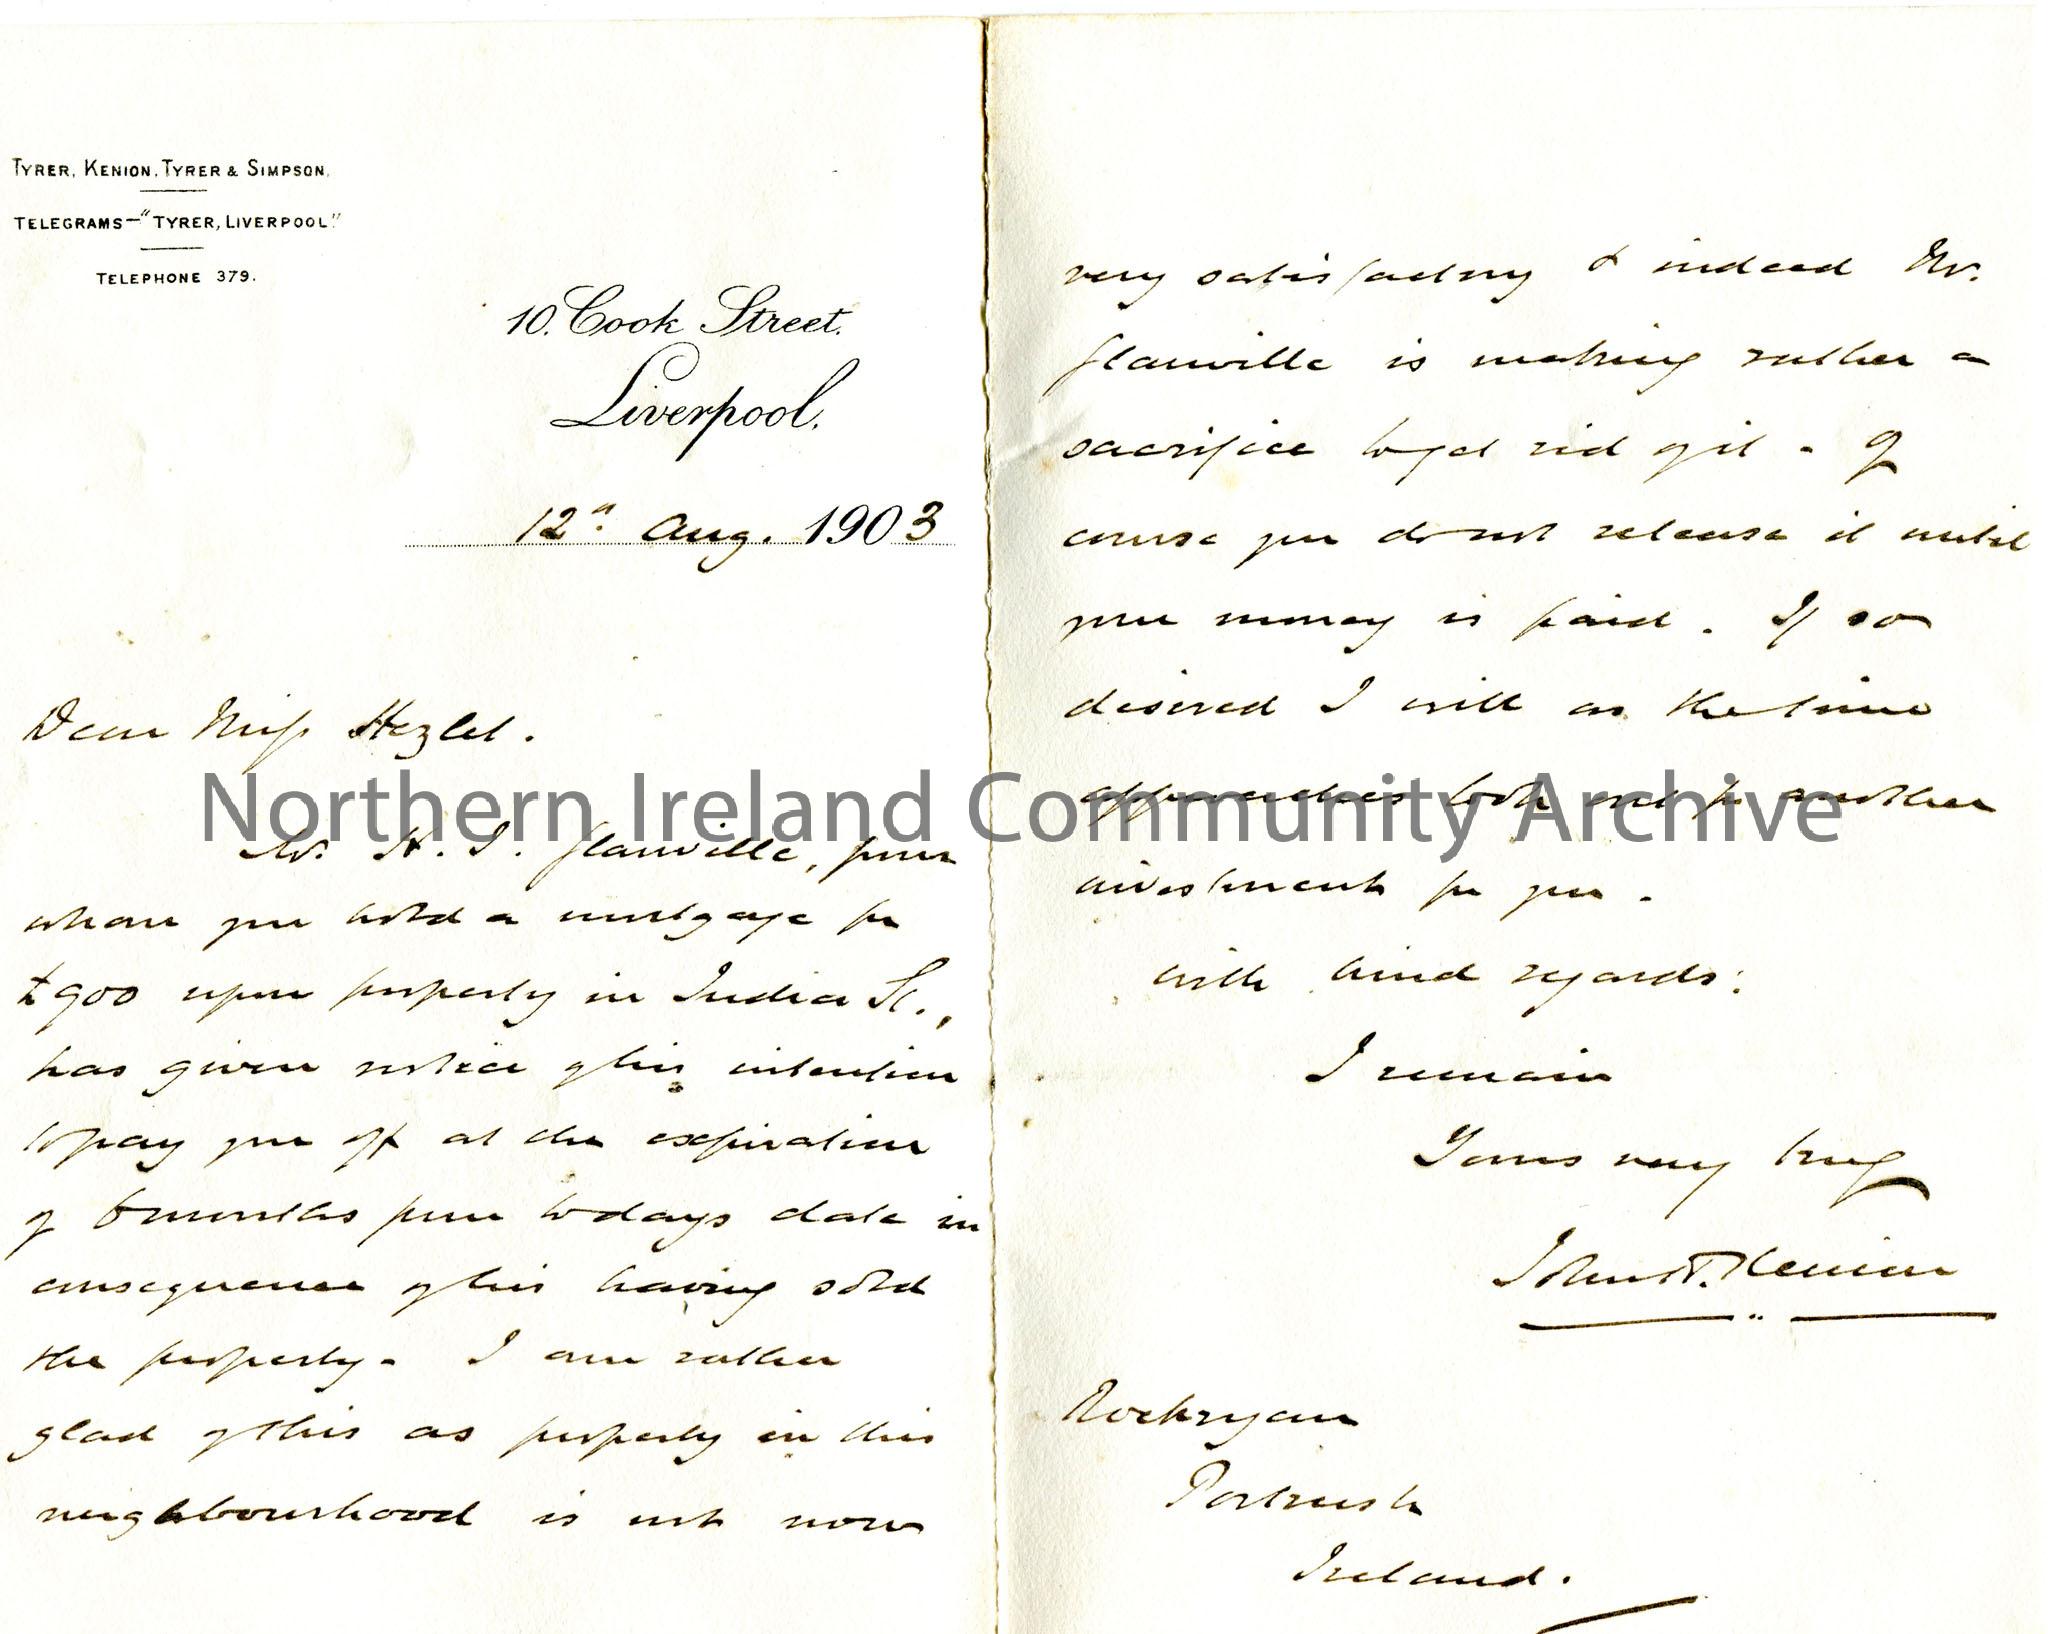 TYRER, KENION, TYRER & SIMPSON.
TELEGRAMS—"TYRER, LIVERPOOL."
TELEPHONE 379.
10. Cook Street.
Liverpool.
12th Aug. 1903
Dear Miss Hezlet.
Mr. H. J. Glanville, from
whom you hold a mortgage for
£900 upon property in India St.,
has given notice of his intention
to pay you off at the expiration
of 6 months from todays date in
consequence of his having sold
the property. I am rather
glad of this as property in this
neighbourhood is not now
very satisfactory & indeed Mr.
Glanville is making rather a
sacrifice to get rid of it. Of
course you do not release it until
your money is paid. If so
desired I will as the time
approaches look out for another
investment for you.
With kind regards:
I remain
Yours very truly
John N. Kenion
Rockryan
Portrush
Ireland.
Northern Ireland Community Archive